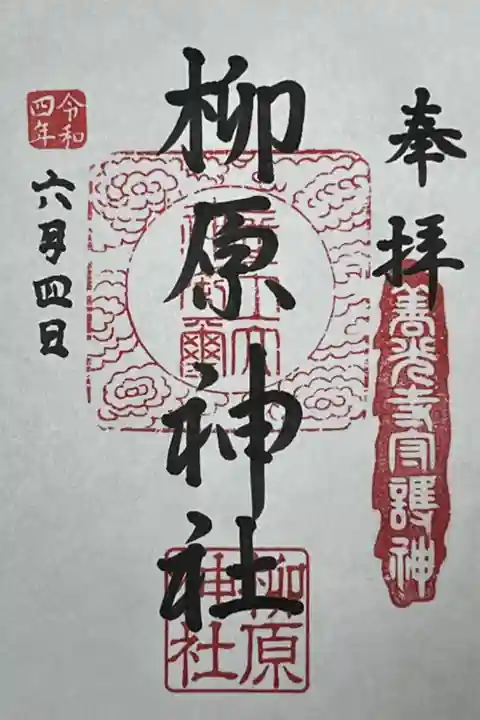 奉拝
善光寺守護神
柳原神社
柳原
神社
令和
四年
六月四日